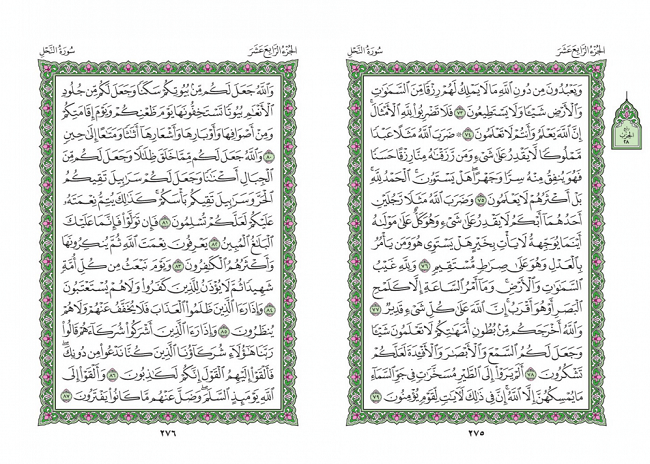 الجزء الرابع عشر
سورة النحل
وَيَعْبُدُونَ مِن دُونِ ٱللَّهِ مَا لَا يَمْلِكُ لَهُمْ رِزْقًا مِّنَ ٱلسَّمَٰوَٰتِ
وَٱلْأَرْضِ شَيْـًٔا وَلَا يَسْتَطِيعُونَ ٧٣ فَلَا تَضْرِبُوا۟ لِلَّهِ ٱلْأَمْثَالَ ۚ
إِنَّ ٱللَّهَ يَعْلَمُ وَأَنتُمْ لَا تَعْلَمُونَ ٧٤ ۞ ضَرَبَ ٱللَّهُ مَثَلًا عَبْدًا
مَّمْلُوكًا لَّا يَقْدِرُ عَلَىٰ شَىْءٍ وَمَن رَّزَقْنَٰهُ مِنَّا رِزْقًا حَسَنًا
فَهُوَ يُنفِقُ مِنْهُ سِرًّا وَجَهْرًا ۖ هَلْ يَسْتَوُۥنَ ۚ ٱلْحَمْدُ لِلَّهِ ۚ
بَلْ أَكْثَرُهُمْ لَا يَعْلَمُونَ ٧٥ وَضَرَبَ ٱللَّهُ مَثَلًا رَّجُلَيْنِ
أَحَدُهُمَآ أَبْكَمُ لَا يَقْدِرُ عَلَىٰ شَىْءٍ وَهُوَ كَلٌّ عَلَىٰ مَوْلَىٰهُ
أَيْنَمَا يُوَجِّههُّ لَا يَأْتِ بِخَيْرٍ ۖ هَلْ يَسْتَوِى هُوَ وَمَن يَأْمُرُ
بِٱلْعَدْلِ ۙ وَهُوَ عَلَىٰ صِرَٰطٍ مُّسْتَقِيمٍ ٧٦ وَلِلَّهِ غَيْبُ
ٱلسَّمَٰوَٰتِ وَٱلْأَرْضِ ۚ وَمَآ أَمْرُ ٱلسَّاعَةِ إِلَّا كَلَمْحِ
ٱلْبَصَرِ أَوْ هُوَ أَقْرَبُ ۚ إِنَّ ٱللَّهَ عَلَىٰ كُلِّ شَىْءٍ قَدِيرٌ ٧٧
وَٱللَّهُ أَخْرَجَكُم مِّنۢ بُطُونِ أُمَّهَٰتِكُمْ لَا تَعْلَمُونَ شَيْـًٔا
وَجَعَلَ لَكُمُ ٱلسَّمْعَ وَٱلْأَبْصَٰرَ وَٱلْأَفْـِٔدَةَ ۙ لَعَلَّكُمْ
تَشْكُرُونَ ٧٨ أَلَمْ يَرَوْا۟ إِلَى ٱلطَّيْرِ مُسَخَّرَٰتٍ فِى جَوِّ ٱلسَّمَآءِ
مَا يُمْسِكُهُنَّ إِلَّا ٱللَّهُ ۗ إِنَّ فِى ذَٰلِكَ لَءَايَٰتٍ لِّقَوْمٍ يُؤْمِنُونَ ٧٩
٢٧٥
الحزب
٢٨
الجزء الرابع عشر
سورة النحل
وَٱللَّهُ جَعَلَ لَكُم مِّنۢ بُيُوتِكُمْ سَكَنًا وَجَعَلَ لَكُم مِّن جُلُودِ
ٱلْأَنْعَٰمِ بُيُوتًا تَسْتَخِفُّونَهَا يَوْمَ ظَعْنِكُمْ وَيَوْمَ إِقَامَتِكُمْ ۙ
وَمِنْ أَصْوَافِهَا وَأَوْبَارِهَا وَأَشْعَارِهَآ أَثَٰثًا وَمَتَٰعًا إِلَىٰ حِينٍ
٨٠ وَٱللَّهُ جَعَلَ لَكُم مِّمَّا خَلَقَ ظِلَٰلًا وَجَعَلَ لَكُم مِّنَ
ٱلْجِبَالِ أَكْنَٰنًا وَجَعَلَ لَكُمْ سَرَٰبِيلَ تَقِيكُمُ
ٱلْحَرَّ وَسَرَٰبِيلَ تَقِيكُم بَأْسَكُمْ ۚ كَذَٰلِكَ يُتِمُّ نِعْمَتَهُۥ
عَلَيْكُمْ لَعَلَّكُمْ تُسْلِمُونَ ٨١ فَإِن تَوَلَّوْا۟ فَإِنَّمَا عَلَيْكَ
ٱلْبَلَٰغُ ٱلْمُبِينُ ٨٢ يَعْرِفُونَ نِعْمَتَ ٱللَّهِ ثُمَّ يُنكِرُونَهَا
وَأَكْثَرُهُمُ ٱلْكَٰفِرُونَ ٨٣ وَيَوْمَ نَبْعَثُ مِن كُلِّ أُمَّةٍ
شَهِيدًا ثُمَّ لَا يُؤْذَنُ لِلَّذِينَ كَفَرُوا۟ وَلَا هُمْ يُسْتَعْتَبُونَ
٨٤ وَإِذَا رَءَا ٱلَّذِينَ ظَلَمُوا۟ ٱلْعَذَابَ فَلَا يُخَفَّفُ عَنْهُمْ وَلَا هُمْ
يُنظَرُونَ ٨٥ وَإِذَا رَءَا ٱلَّذِينَ أَشْرَكُوا۟ شُرَكَآءَهُمْ قَالُوا۟
رَبَّنَا هَٰٓؤُلَآءِ شُرَكَآؤُنَا ٱلَّذِينَ كُنَّا نَدْعُوا۟ مِن دُونِكَ ۖ
فَأَلْقَوْا۟ إِلَيْهِمُ ٱلْقَوْلَ إِنَّكُمْ لَكَٰذِبُونَ ٨٦ وَأَلْقَوْا۟ إِلَى
ٱللَّهِ يَوْمَئِذٍ ٱلسَّلَمَ ۖ وَضَلَّ عَنْهُم مَّا كَانُوا۟ يَفْتَرُونَ ٨٧
٢٧٦